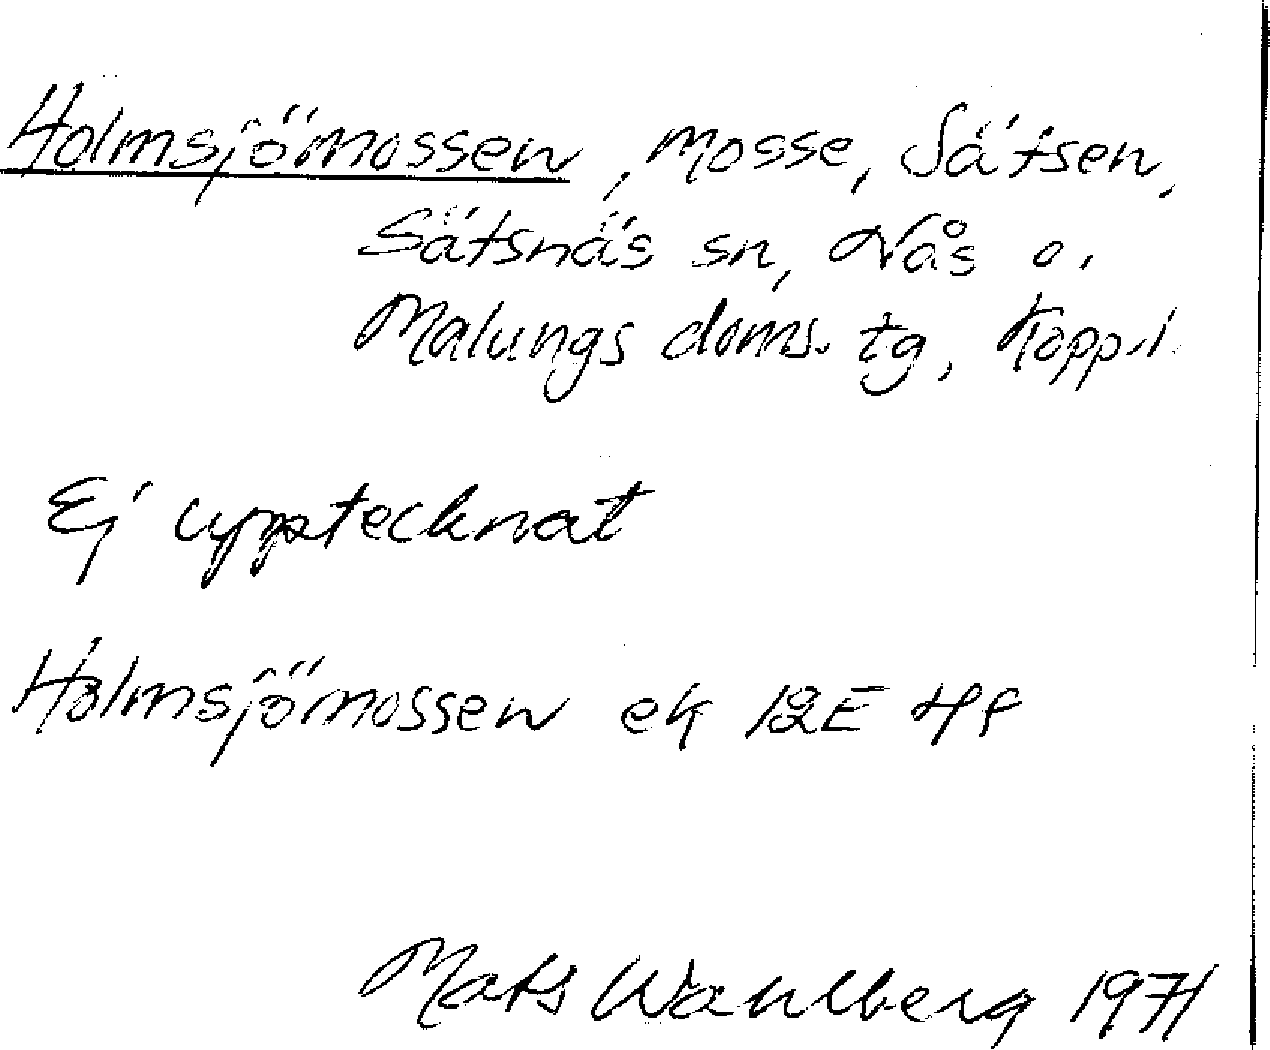 Holmsjömossen, mosse, Sätsen,
Sätsnäs sn, Nås o.
Malungs doms. tg, Kopp.l.
Ej upptecknat
Holmsjömossen ek 12E 4f
Mats Wahlberg 1971